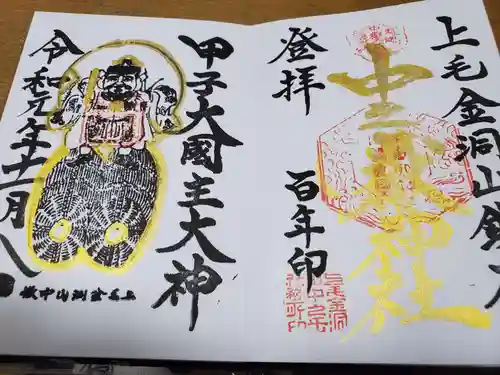 上毛金洞山鎮
中之嶽神社
登拝
百年印
甲子大國主大神
令和元年十一月
上毛金洞山中嶽